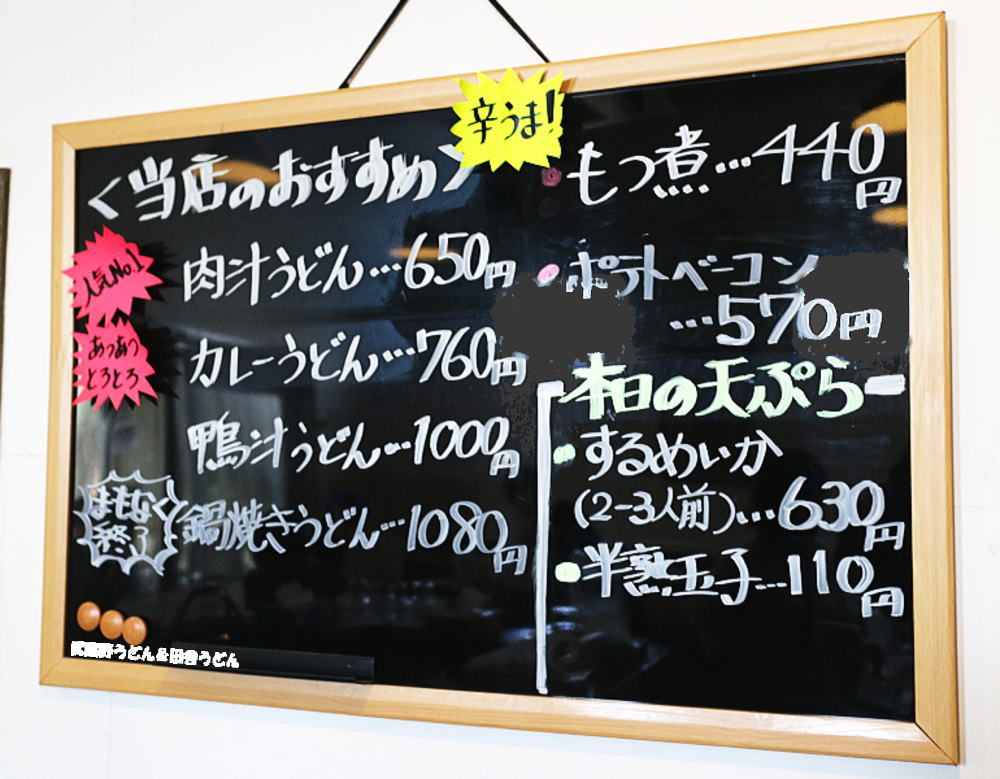 <当店のおすすめ>
人気No.1
肉汁うどん…650円
あつあつ
とろとろ
カレーうどん…760円
鴨汁うどん…1000円
まもなく
終了
鍋焼きうどん…1080円
辛うま!
もつ煮…440円
ポテトベーコン
…570円
本日の天ぷら
するめいか
(2-3人前)…630円
半熟玉子…110円
武蔵野うどん&田舎うどん